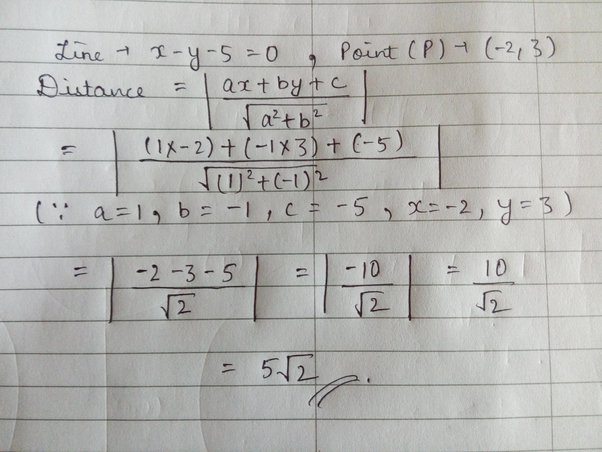 Line → x-y-5=0 , Point (P) → (-2,3)
Distance = | ax+by+c / √a²+b² |
= | (1×-2)+(-1×3)+(-5) / √(1)²+(-1)² |
(∵ a=1, b=-1, c=-5, x=-2, y=3)
= | -2-3-5 / √2 | = | -10 / √2 | = 10 / √2
= 5√2 .